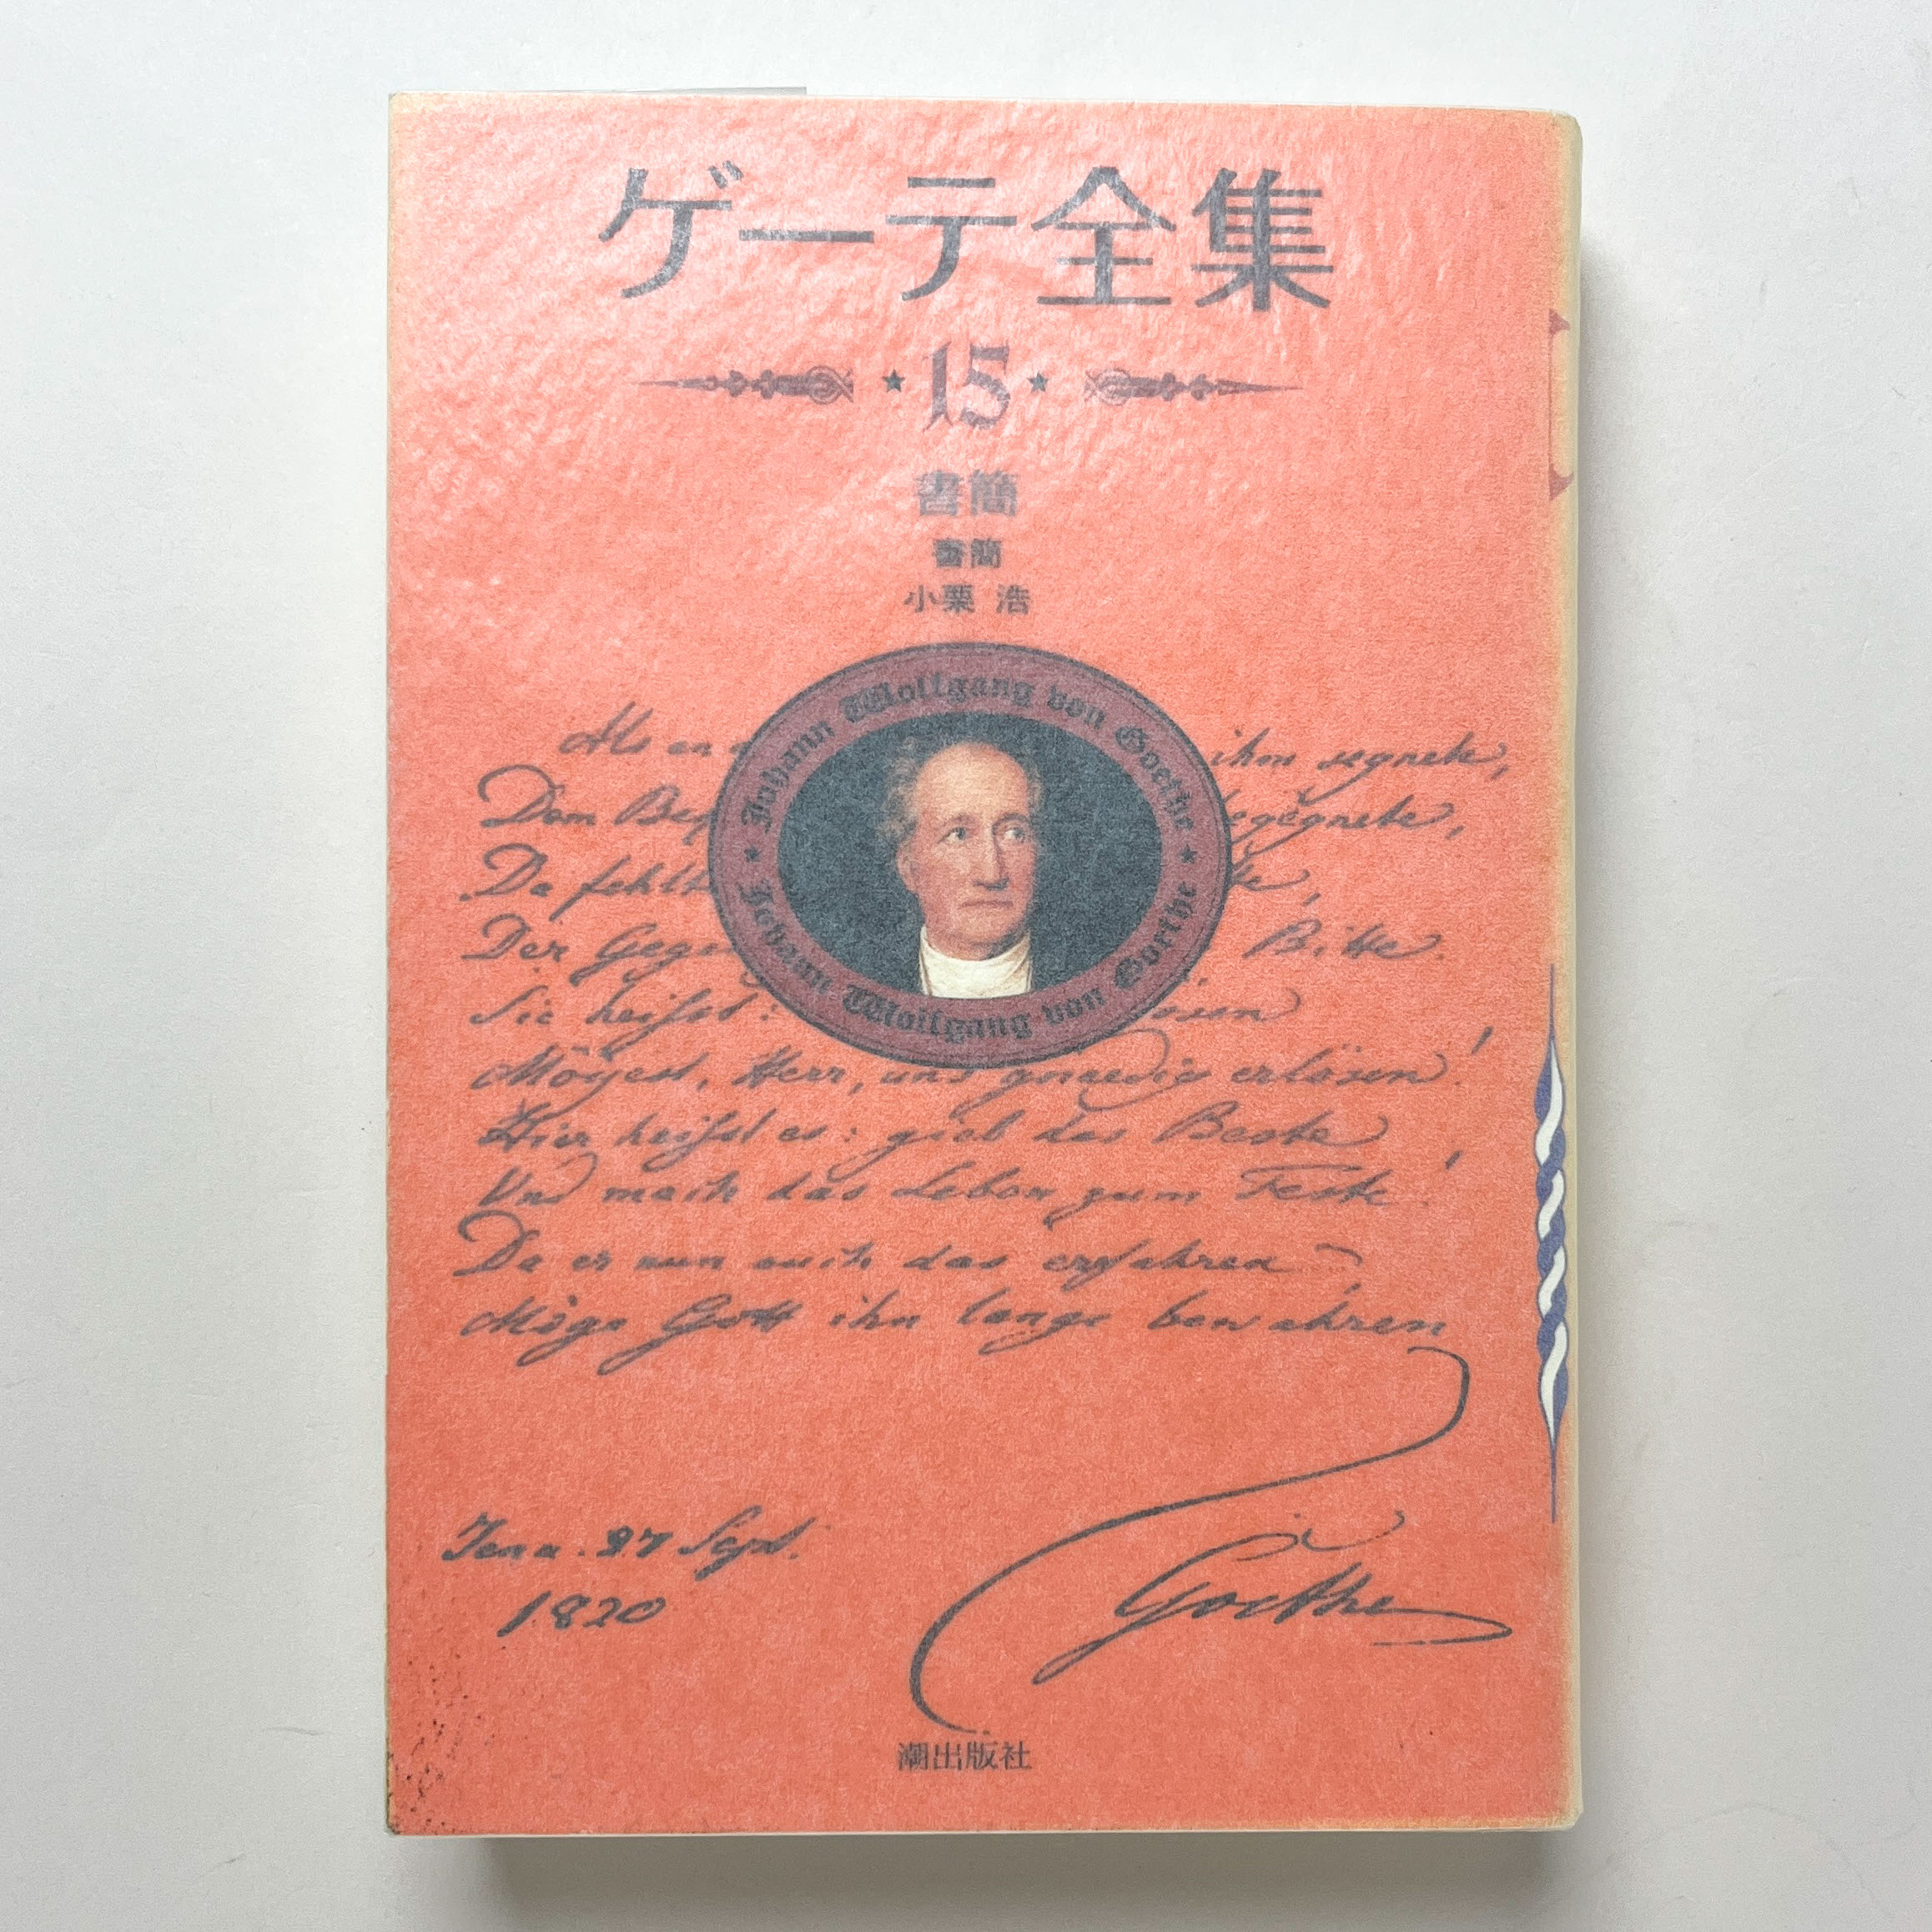 ゲーテ全集
15
書簡
書簡
小栗 浩
Johann Wolfgang von Goethe
Johann Wolfgang von Goethe
Als er ihm segnete,
Dem Beg egegnete,
Da fehlt te,
Der Gege Bitte.
Sie heisst: ösen
Mögest, Herr, uns gnaedig erlösen!
Hier heisst es: gieb das Beste
Und mach das Leben zum Feste!
Da er nun auch das erfahren,
Möge Gott ihn lange bewahren
Jena. 27 Sept.
1820
Goethe
潮出版社